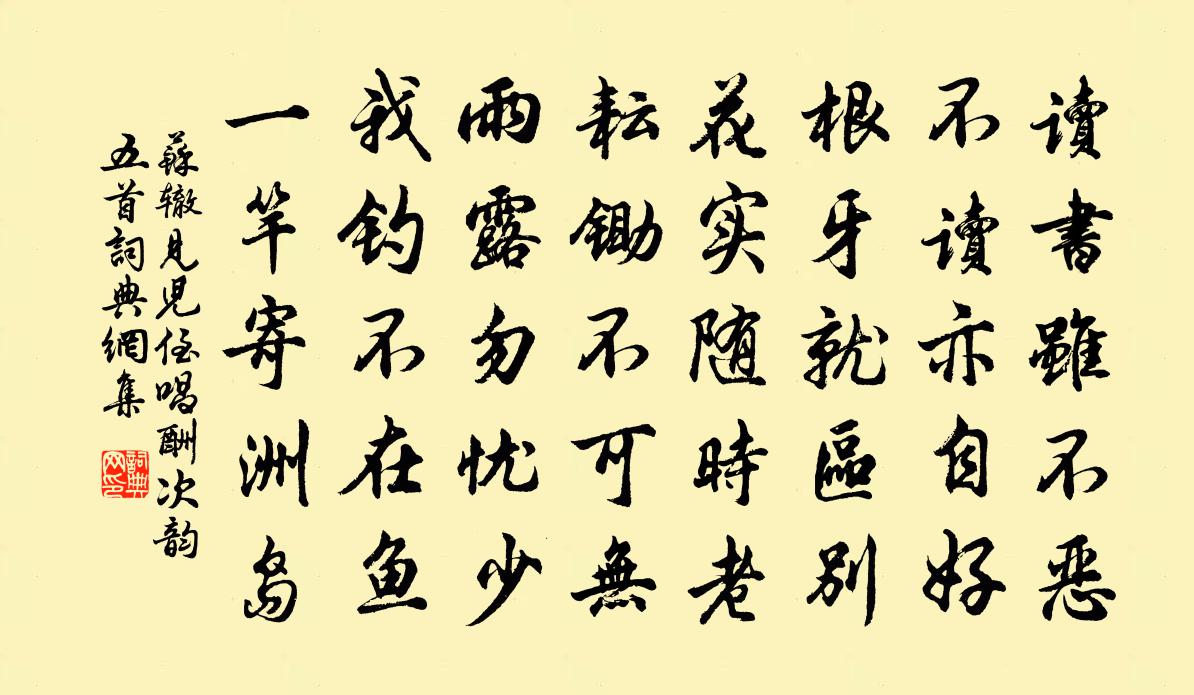 讀書雖不惡
不讀亦自好
根牙就區别
花实随時老
耘鋤不可無
雨露勿忧少
我钓不在鱼
一竿寄洲岛
蘇辙見児侄唱酬次韵
五首詞典網集
詞典网印